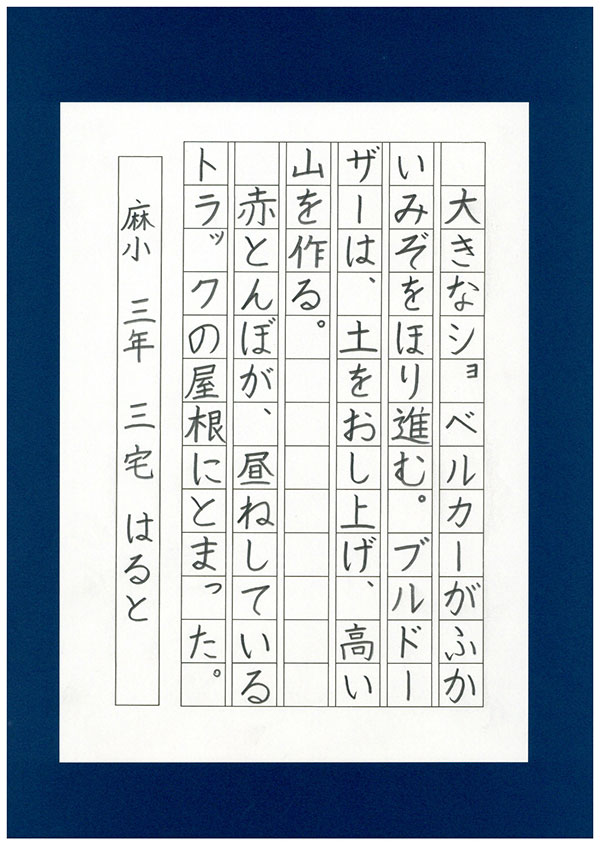 大きなショベルカーがふか
いみぞをほり進む。ブルドー
ザーは、土をおし上げ、高い
山を作る。
　赤とんぼが、昼ねしている
トラックの屋根にとまった。
麻小　三年　三宅　はると